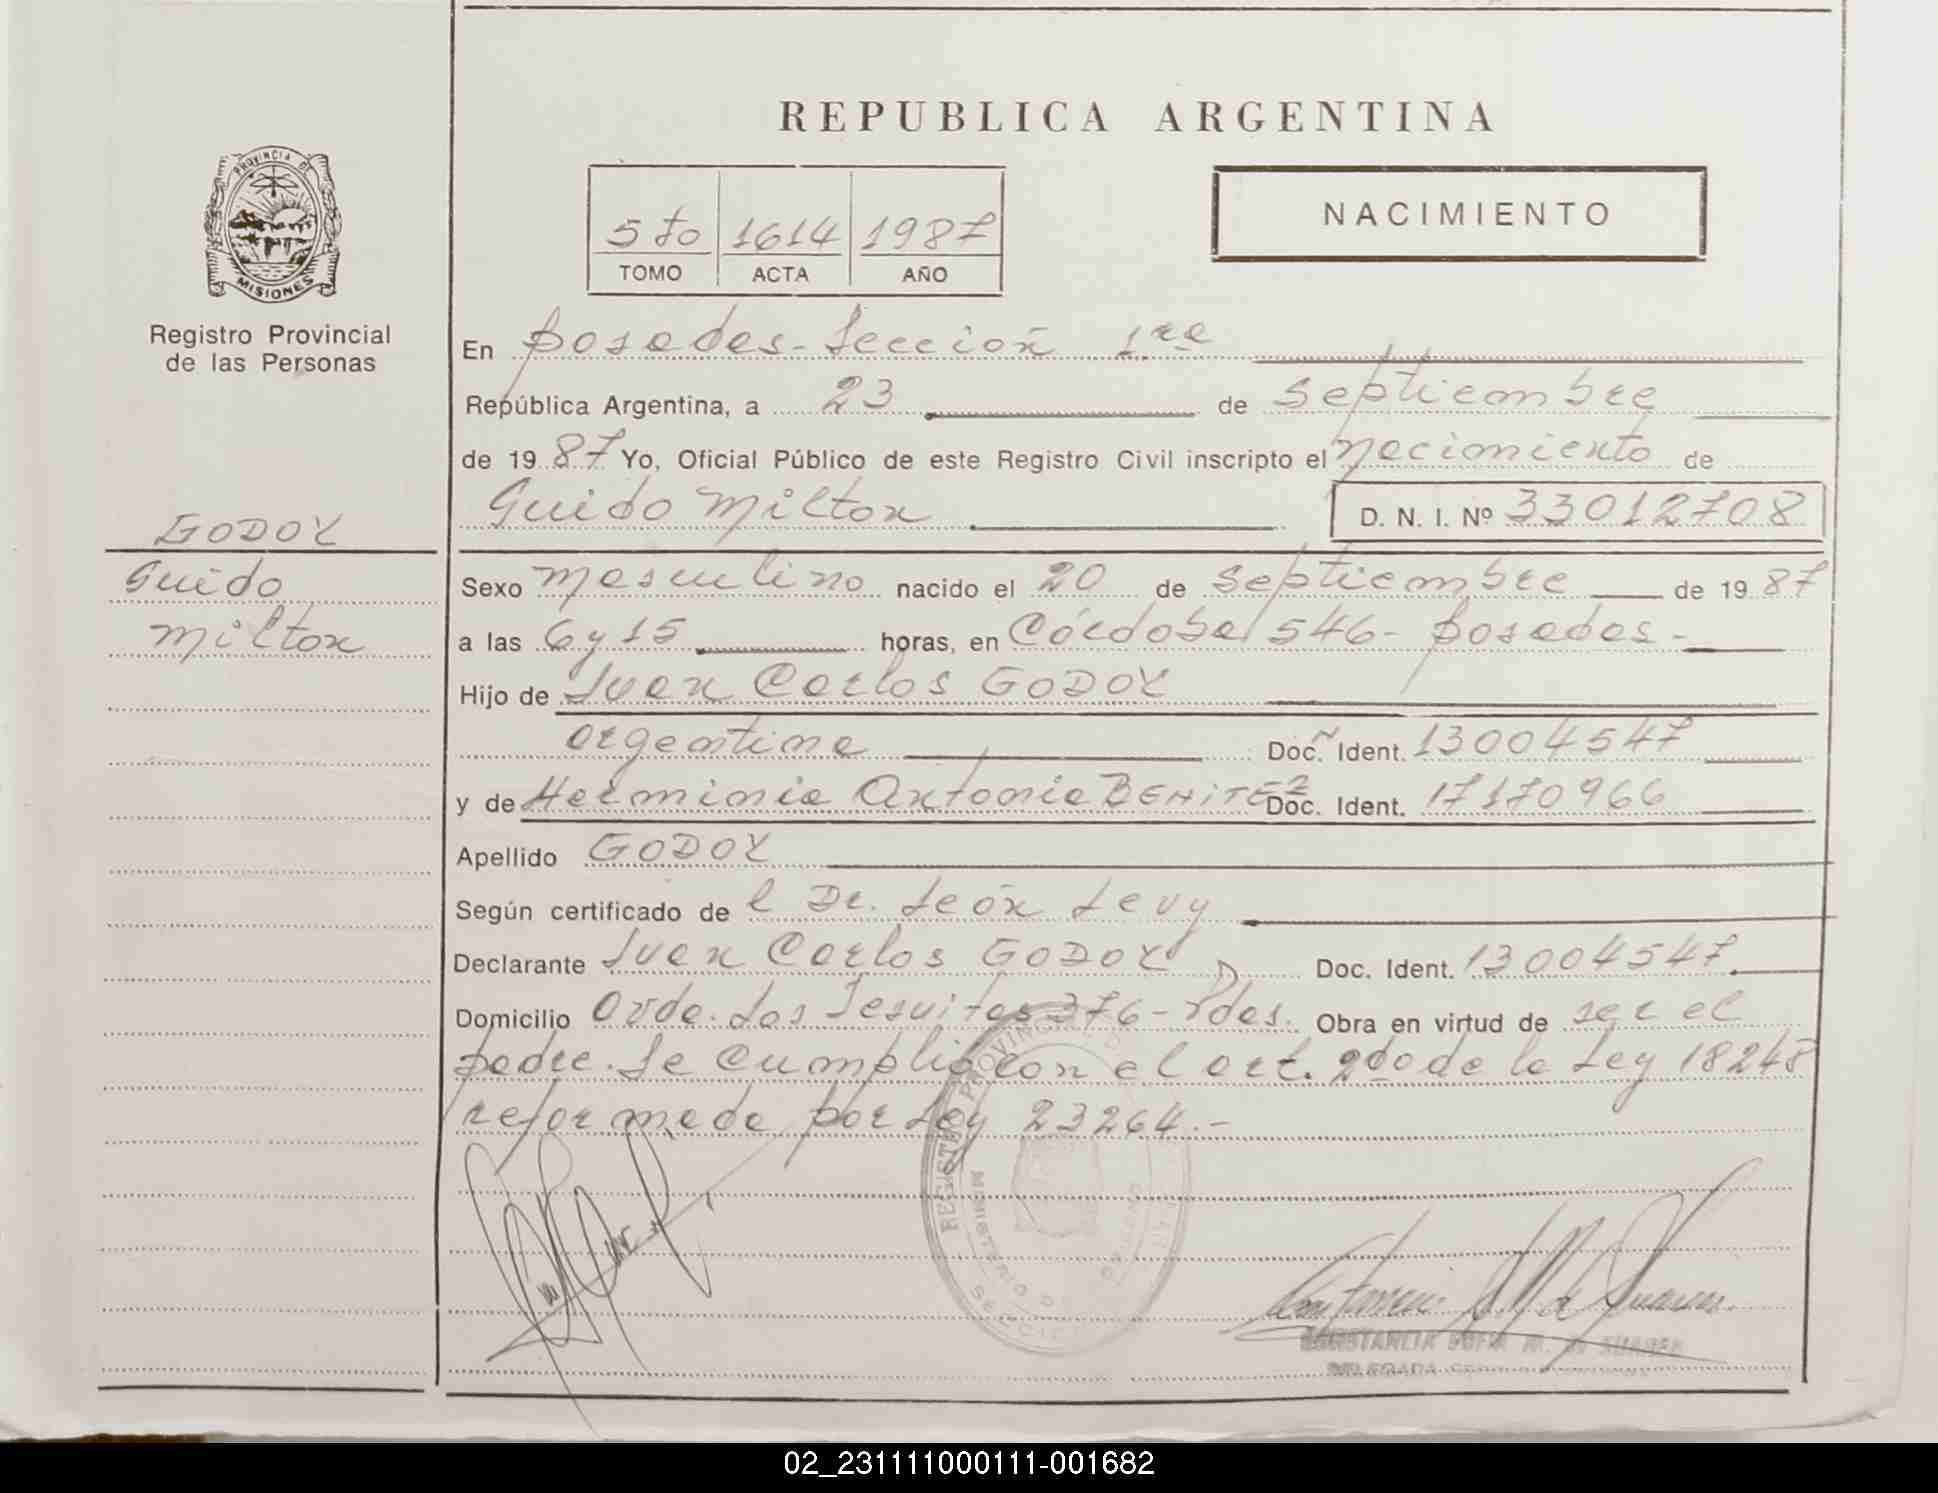 REPUBLICA ARGENTINA
PROVINCIA DE
MISIONES
Registro Provincial
de las Personas
5to 1614 1987
TOMO ACTA AÑO
NACIMIENTO
En Posadas-Sección 1ra
República Argentina, a 23 de Septiembre
de 1987 Yo, Oficial Público de este Registro Civil inscripto el nacimiento de
Guido Milton D. N. I. Nº 33012708
GODOY
Guido
Milton
Sexo Masculino nacido el 20 de Septiembre de 1987
a las 6 y 15 horas, en Córdoba 546- Posadas-
Hijo de Juan Carlos GODOY
argentina Doc. Ident. 13004547
y de Herminia Antonia BENITEZ Doc. Ident. 17170966
Apellido GODOY
Según certificado de l Dr. León Levy
Declarante Juan Carlos GODOY Doc. Ident. 13004547
Domicilio Avda. Los Jesuitas 376-Pdas. Obra en virtud de ser el
padre. Se cumplió con el art. 2do de la Ley 18248
reformada por Ley 23264.-
REGISTRO PROVINCIAL
MINISTERIO DE GOBIERNO
CONSTANCIA SOFIA M. DE SUAREZ
DELEGADA
02_231111000111-001682